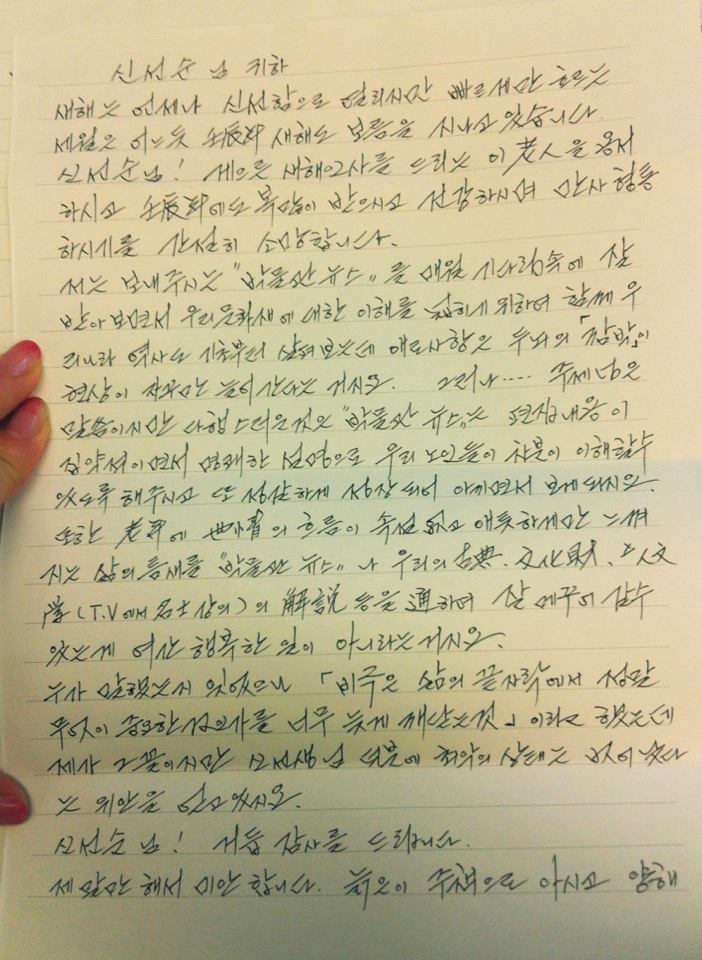 신선순 님 귀하
새해는 언제나 신선함으로 열리지만 빠르게만 흐르는
세월은 어느듯 壬辰年 새해도 보름을 지나고 있습니다.
신선순 님! 게으른 새해인사를 드리는 이 老人을 용서
하시고 壬辰年에도 복많이 받으시고 건강하시며 만사형통
하시기를 간절히 소망합니다.
저는 보내주시는 "박물관 뉴스"를 매월 기다림속에 잘
받아 보면서 우리문화재에 대한 이해를 넓히기 위하여 함께 우
리나라 역사도 기초부터 살펴보는데 애로사항은 두뇌의 「깜박」이
현상이 자꾸만 늘어간다는 거지요. 그러나..... 주제넘은
말씀이지만 다행스러운것은 "박물관 뉴스"는 편집내용이
집약적이면서 명쾌한 설명으로 우리 노인들이 차분이 이해할수
있도록 해주시고 또 성실하게 성장되어 아끼면서 보게되지요.
또한 老年에 世月의 흐름이 속절없고 애틋하게만 느껴
지는 삶의 틈새를 "박물관 뉴스"나 우리의 古典、文化財、人文
學(T.V에서 名士 강의)의 解說 등을 通하여 잘 메꾸어 갈수
있는게 여간 행복한 일이 아니라는거지요.
누가 말했는지 잊었으나 「비극은 삶의 끝자락에서 정말
무엇이 중요한것인가를 너무 늦게 깨닫는것」이라고 했는데
제가 그꼴이지만 신선생님 덕분에 최악의 상태는 벗어 났다
는 위안을 안고있지요.
신선순 님! 거듭 감사를 드립니다.
제 말만 해서 미안합니다. 늙은이 주책으로 아시고 양해